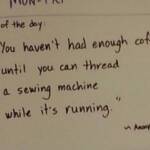 MON-FRI
of the day:
You haven't had enough cof
until you can thread
a sewing machine
while it's running."